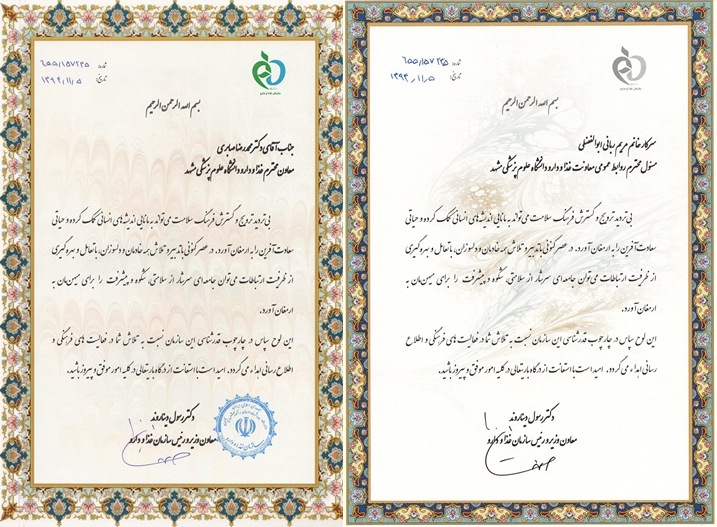 شماره: ۶۵۵/۱۵۷۲۳۵
تاریخ: ۱۳۹۴/۱۱/۵
بسم الله الرحمن الرحیم
جناب آقای دکتر محمدرضا صابری
معاون محترم غذا و دارو دانشگاه علوم پزشکی مشهد
بی تردید ترویج و گسترش فرهنگ سلامت می‌تواند به مانایی اندیشه‌های انسانی کمک کرده و حیاتی
سعادت آفرین را به ارمغان آورد. در عصر کنونی با تدبیر و تلاش همه خادمان و دلسوزان، با تعامل و بهره گیری
از ظرفیت ارتباطات می‌توان جامعه ای سرشار از سلامتی، شکوه و پیشرفت را برای میهن‌مان به
ارمغان آورد.
این لوح سپاس در چارچوب قدرشناسی این سازمان نسبت به تلاش شما در فعالیت های فرهنگی و
اطلاع رسانی اهداء می گردد. امید است با استعانت از درگاه باریتعالی در کلیه امور موفق و پیروز باشید.
دکتر رسول دیناروند
معاون وزیر و رئیس سازمان غذا و دارو
شماره: ۶۵۵/۱۵۷۲۳۵
تاریخ: ۱۳۹۴/۱۱/۵
بسم الله الرحمن الرحیم
سرکار خانم مریم ربانی ابوالفضلی
مسئول محترم روابط عمومی معاونت غذا و دارو دانشگاه علوم پزشکی مشهد
بی تردید ترویج و گسترش فرهنگ سلامت می‌تواند به مانایی اندیشه‌های انسانی کمک کرده و حیاتی
سعادت آفرین را به ارمغان آورد. در عصر کنونی با تدبیر و تلاش همه خادمان و دلسوزان، با تعامل و بهره گیری
از ظرفیت ارتباطات می‌توان جامعه ای سرشار از سلامتی، شکوه و پیشرفت را برای میهن‌مان به
ارمغان آورد.
این لوح سپاس در چارچوب قدرشناسی این سازمان نسبت به تلاش شما در فعالیت های فرهنگی و اطلاع
رسانی اهداء می گردد. امید است با استعانت از درگاه باریتعالی در کلیه امور موفق و پیروز باشید.
دکتر رسول دیناروند
معاون وزیر و رئیس سازمان غذا و دارو